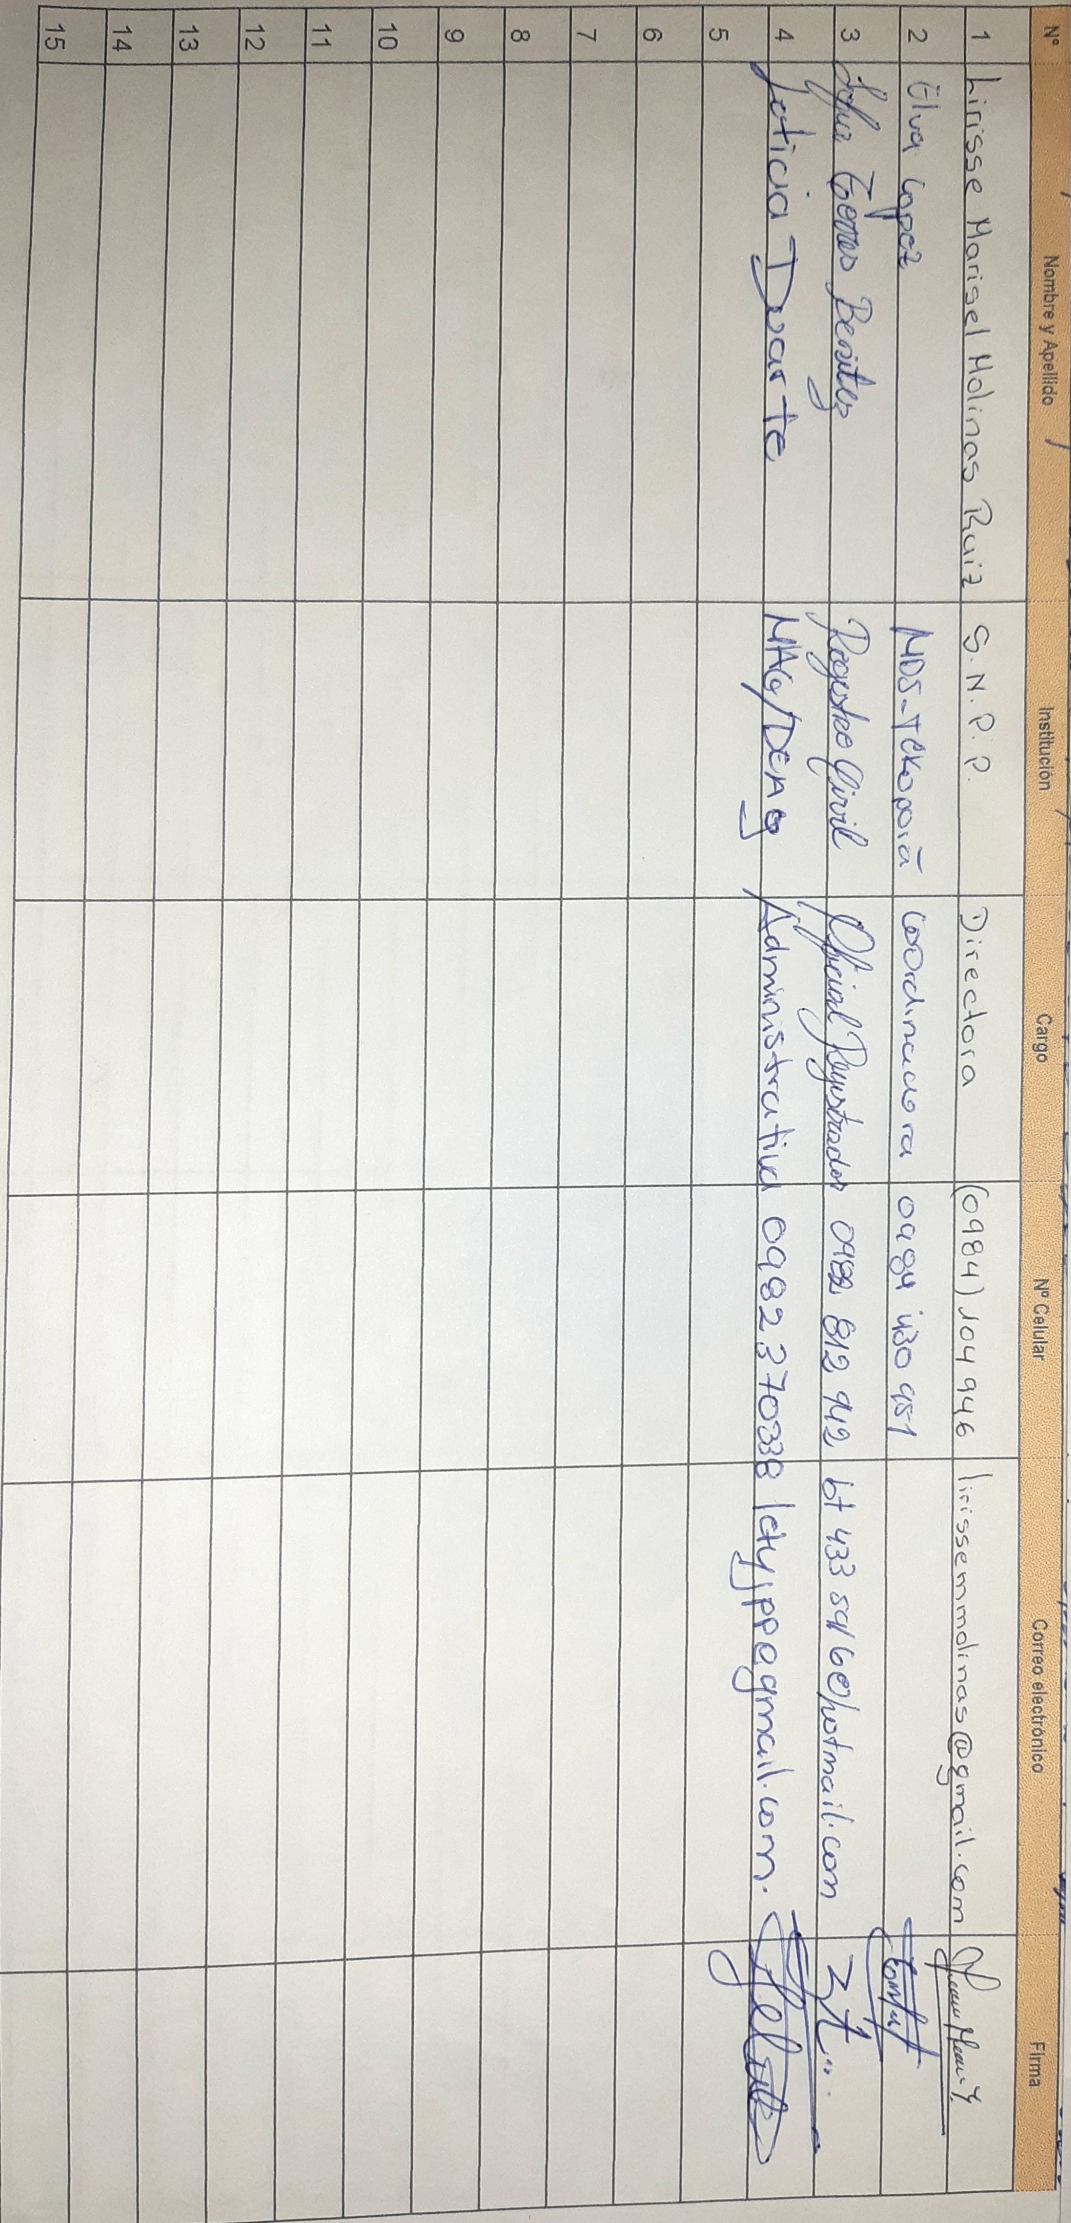 Nº Nombre y Apellido Institución Cargo Nº Celular Correo electrónico Firma
1 Lirisse Marisel Molinas Ruiz S.N.P.P. Directora (0984) 104 946 lirissemmolinas@gmail.com
2 Elva Lopez MDS-Tekoporã Coordinadora 0984 430 951
3 Benitez Registro Civil Oficial Registrador 812 942
4 Leticia Duarte Administrativa 0982 370338 letyjpp@gmail.com.
5
6
7
8
9
10
11
12
13
14
15